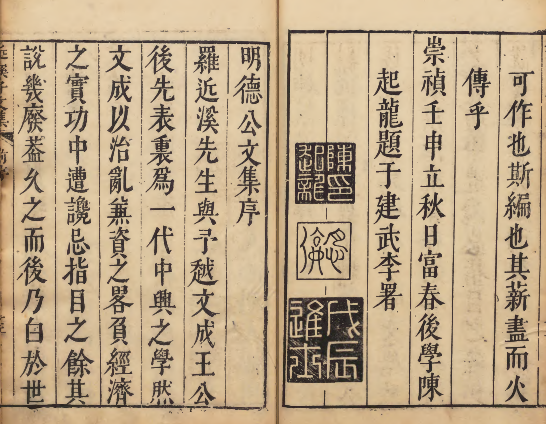 可作也斯編也其薪盡而火
傳乎
崇禎壬申立秋日富春後學陳
起龍題于建武李署
陳印起龍
戊辰進士
明德公文集序
羅近溪先生與予越文成王公
後先表裏爲一代中興之學然
文成以治亂兼資之畧負經濟
之實功中遭讒忌指目之餘其
說幾廢葢久之而後乃白於世